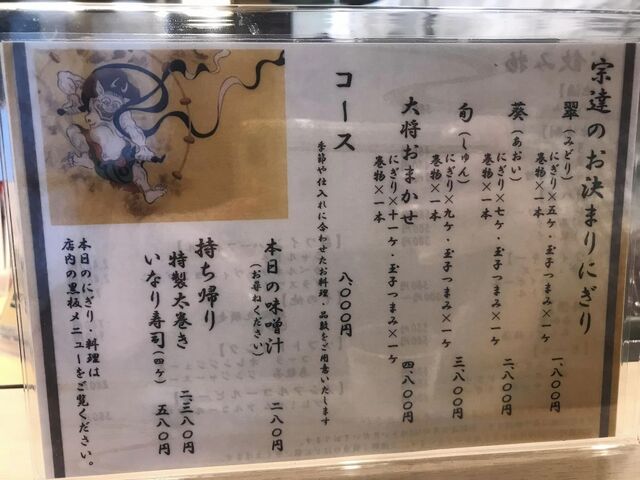 宗達のお決まりにぎり
翠(みどり)
にぎり×五ケ・玉子つまみ×一ケ
巻物×一本
一、八〇〇円
葵(あおい)
にぎり×七ケ・玉子つまみ×一ケ
巻物×一本
二、八〇〇円
旬(しゅん)
にぎり×九ケ・玉子つまみ×一ケ
巻物×一本
三、八〇〇円
大将おまかせ
にぎり×十一ケ・玉子つまみ×一ケ
巻物×一本
四、八〇〇円
コース
季節や仕入れに合わせたお料理・品数をご用意いたします
八、〇〇〇円
本日の味噌汁
(お尋ねください)
二八〇円
持ち帰り
特製太巻き
二、三八〇円
いなり寿司(四ケ)
五八〇円
本日のにぎり・料理は
店内の黒板メニューをご覧ください。
お飲み物